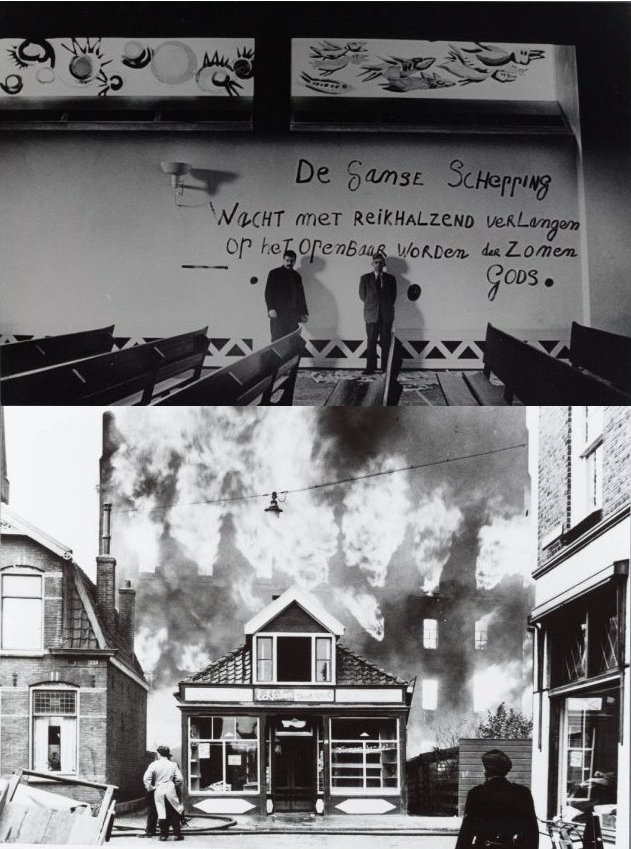 De Ganse Schepping
Wacht met reikhalzend verlangen
op het openbaar worden der Zonen
GODS.